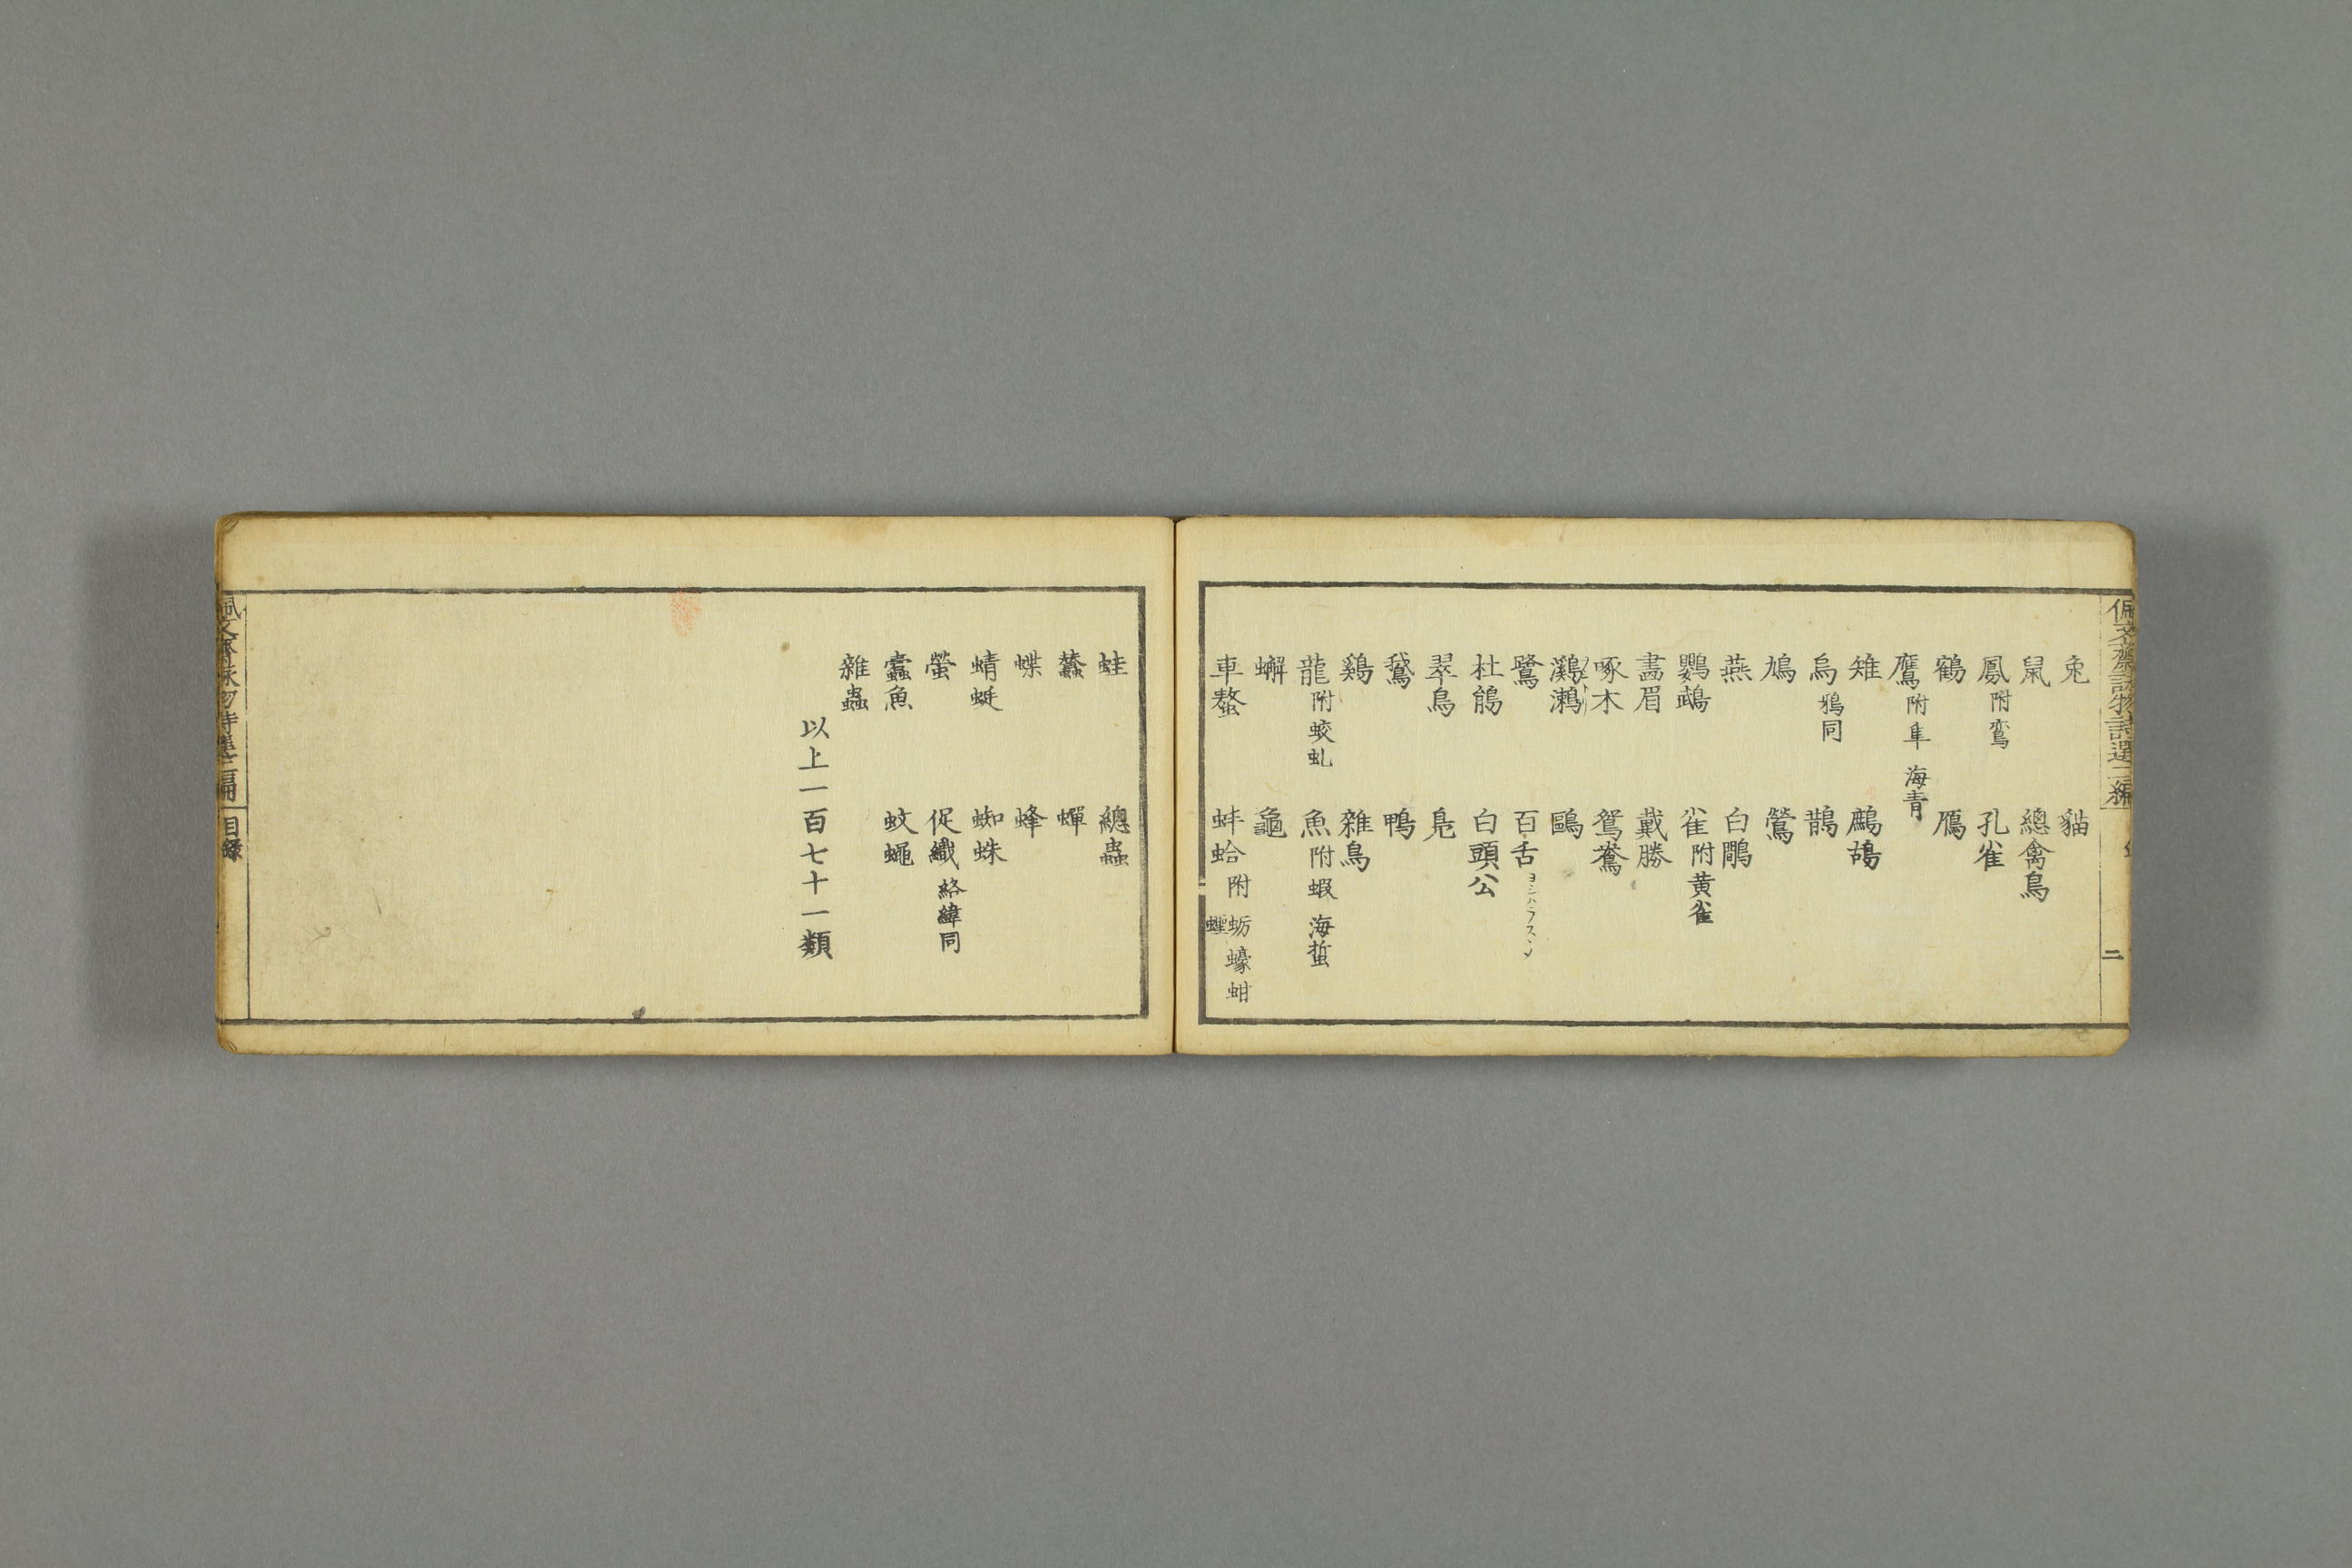 佩文齋詠物詩選二編
二
兎 貓
鼠 總禽鳥
鳳附鸞 孔雀
鶴 鴈
鷹附隼 海青
雉 鷓鴣
烏鴉同 鵲
鳩 鶯
燕 白鷴
鸚鵡 雀附黄雀
畵眉 戴勝
啄木 鴛鴦
鸂鷘 鷗
鷺 百舌
杜鵑 白頭公
翠鳥 鳧
鵞 鴨
鷄 雜鳥
龍附蛟虬 魚附蝦 海蜇
蠏 龜
車螯 蚌蛤附蛎蠔蚶蟶
蛙 總蟲
蠶 蟬
蝶 蜂
蜻蜓 蜘蛛
螢 促織絡緯同
蠹魚 蚊蠅
雜蟲
以上一百七十一類
佩文齋詠物詩選二編
目録